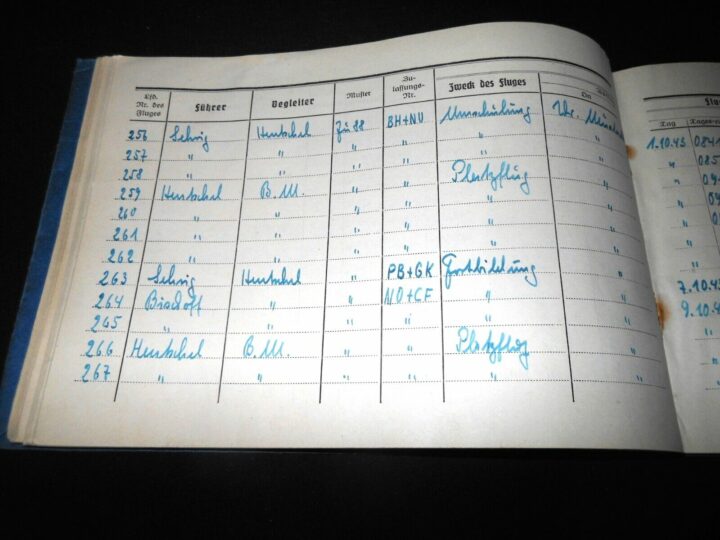 Lfd. Nr. des Fluges Führer Begleiter Muster Zu-lassungs-Nr. Zweck des Fluges Ort
256 Sehrig Hentschel Ju 88 BH+NU Umschulung
257 " " " " "
258 " " " " "
259 Hentschel B.M. " " Platzflug "
260 " " " " " "
261 " " " " " "
262 " " " " " "
263 Sehrig Hentschel " PB+GK Fortbildung "
264 Bischoff " " NO+CF " "
265 " " " " " "
266 Hentschel B.M. " " Platzflug "
267 " " " " " "
Tag
1.10.43 084
" 085
"
"
"
7.10.43
9.10.4
"
"